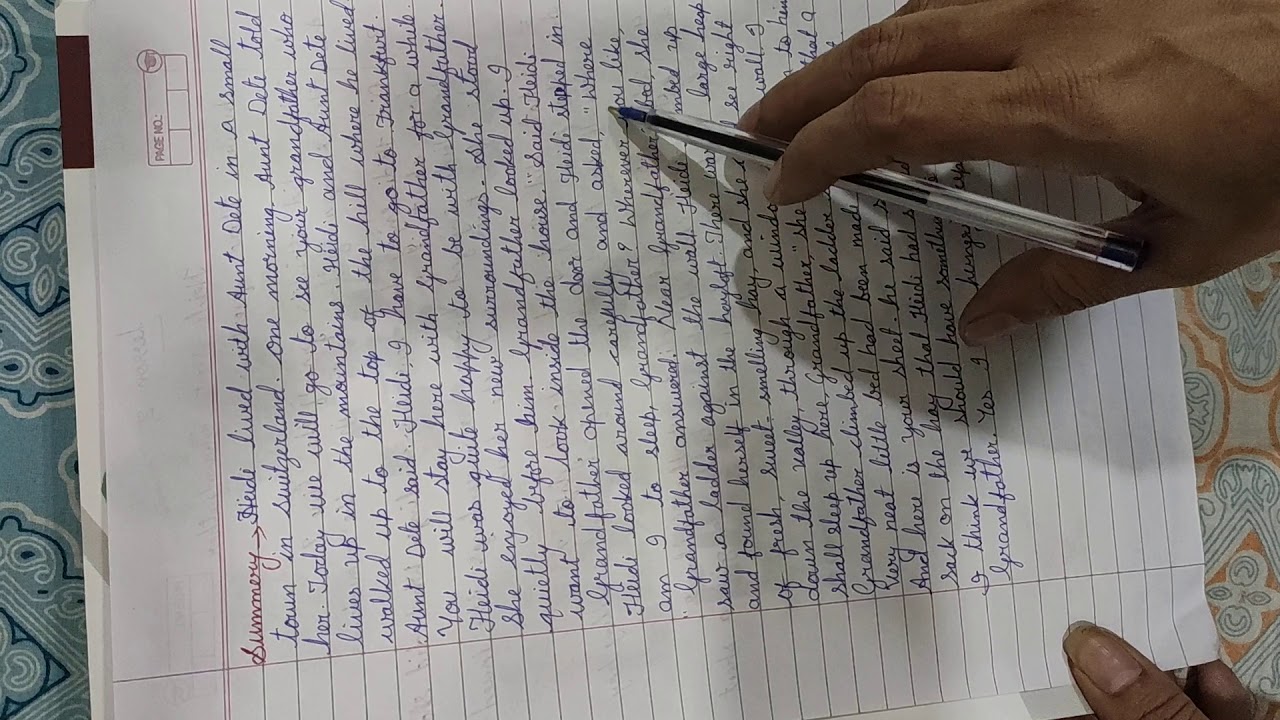 PAGE NO.:
Summery → Heidi lived with Aunt Dete in a small
town in suitgerland. One morning Aunt Dete told
her. Today we will go to see your grandfather who
lives up in the mountains. Heidi and Aunt Dete
walked up to the top of the hill where he lived
Aunt Dete said. Heidi, I have to go to Frankfurt.
You will stay here with grandfather for a while
Heidi was quite happy to be with grandfather.
She enjoyed her new surroundings. She stood
quietly before him Grandfather looked up. I
want to look inside the house. "Said Heidi
Grandfather opened the door and Heidi stepped in.
Heidi looked around carefully and asked, "Where
am I to sleep, Grandfather? Wherever you like,
Grandfather answered. Near Grandfather
saw a ladder against the wall Heidi
and found herself in the hayloft. There
of fresh, sweet smelling hay, and she
down the valley, through a
shall sleep up here, grandfather, "she
Grandfather climbed up the ladder
Very neat little bed had been made
And here is your sheet he said
sack on the hay that Heidi
I think we should have
Grandfather. Yes I